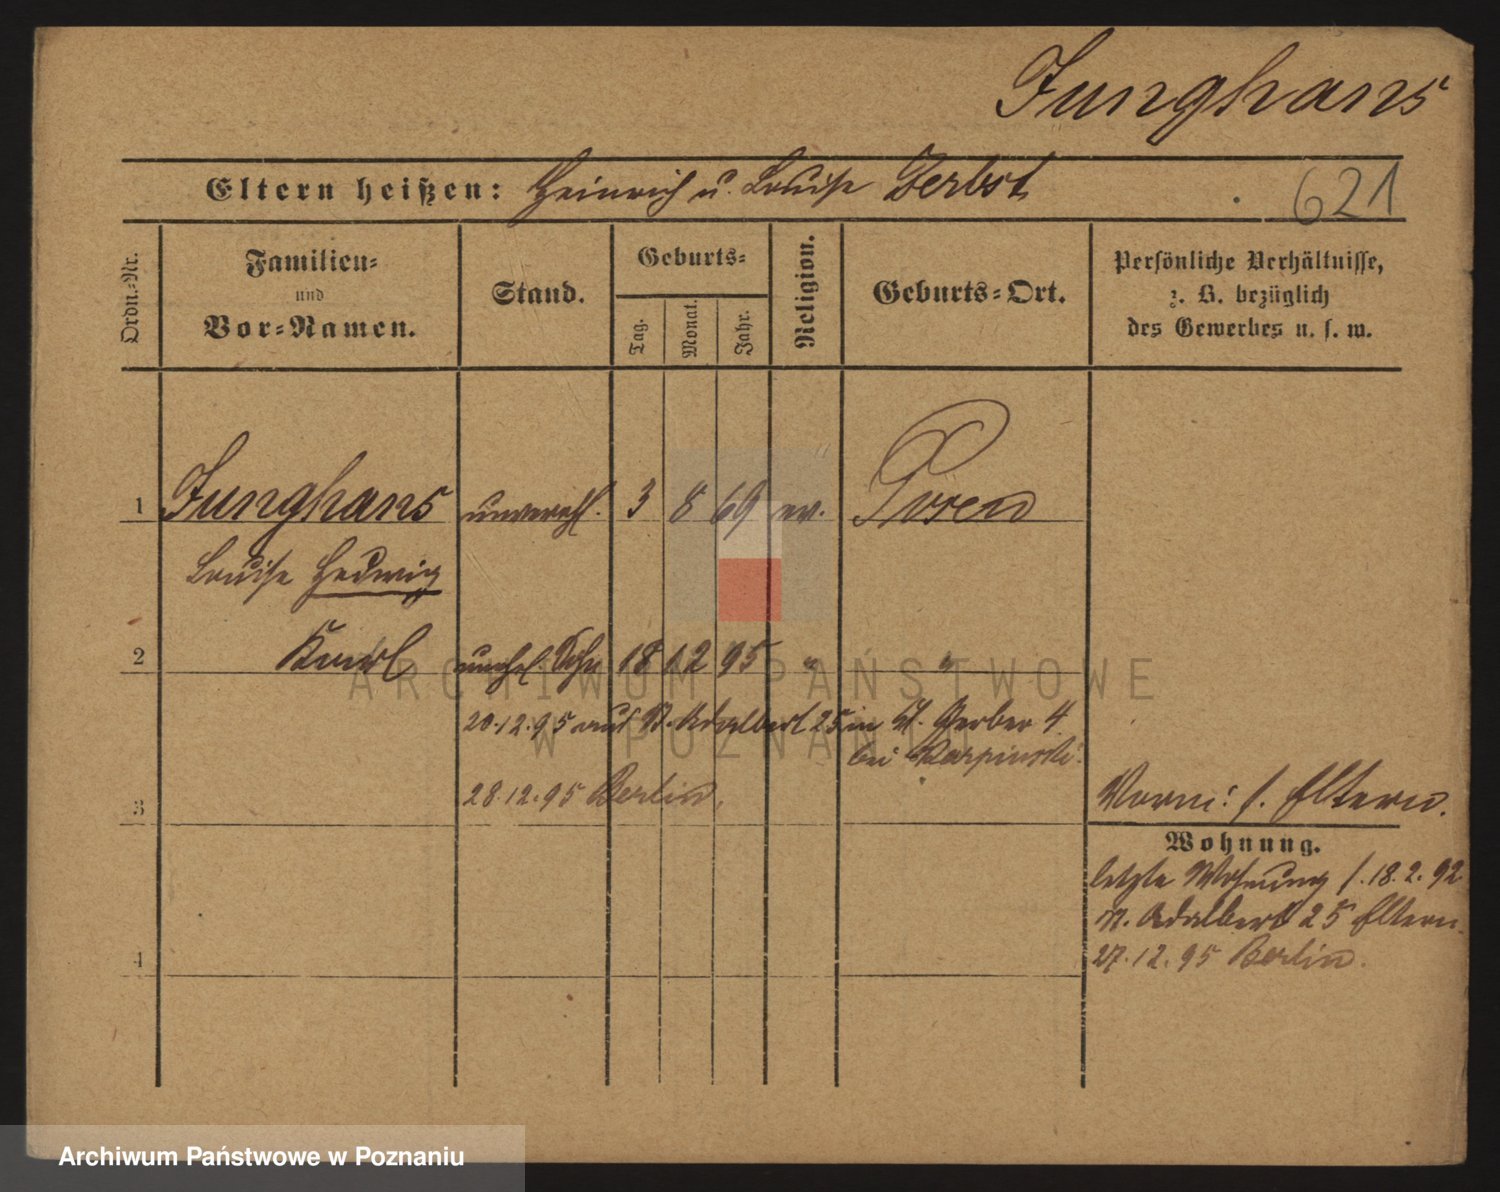 Junghans
Eltern heißen: Heinrich u. Louise Zerbst
621
Ordn.-Nr.
Familien-
und
Vor-Namen.
Stand.
Geburts-
Tag.
Monat.
Jahr.
Religion.
Geburts-Ort.
Persönliche Verhältnisse,
z. B. bezüglich
des Gewerbes u. s. w.
1 Junghans unverehl. 3 8 69 ev. Posen
Louise Hedwig
2 Karl unehel. Sohn 18 12 95 " "
20.12.95 auf St. Adalbert 25 in Gr. Gerber 4
bei Karpinski.
28.12.95 Berlin.
3
Vorm: s. Eltern.
Wohnung.
letzte Wohnung s. 18.2.92
St. Adalbert 25 Eltern.
27.12.95 Berlin.
4
ARCHIWUM PAŃSTWOWE
W POZNANIU
Archiwum Państwowe w Poznaniu